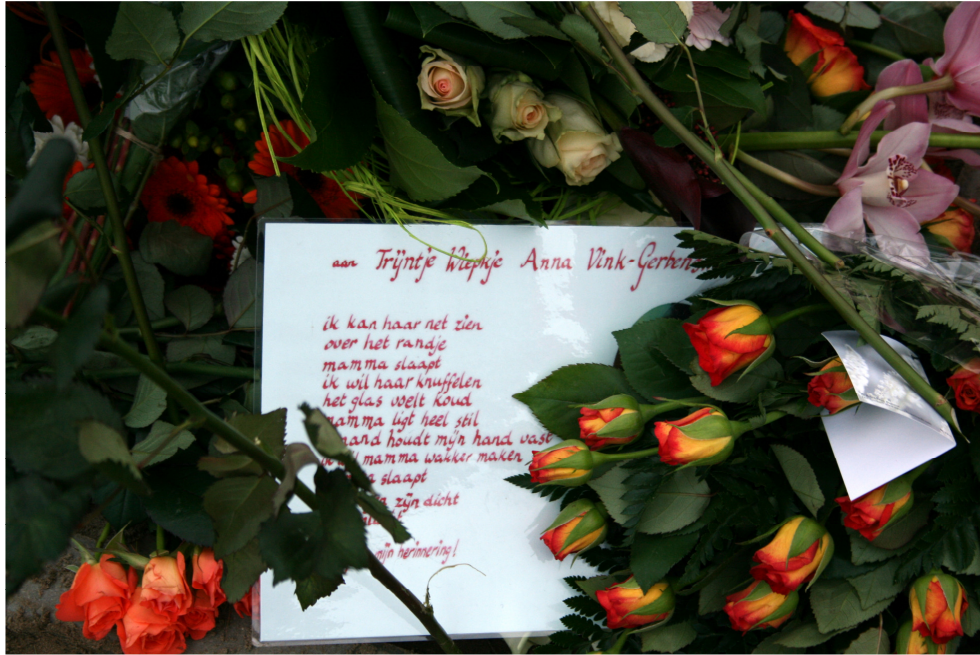 aan Trijntje Wiepkje Anna Vink-Gerbens
ik kan haar net zien
over het randje
mamma slaapt
ik wil haar knuffelen
het glas voelt koud
mamma ligt heel stil
houdt mijn hand vast
mamma wakker maken
slaapt
zijn dicht
mijn herinnering!